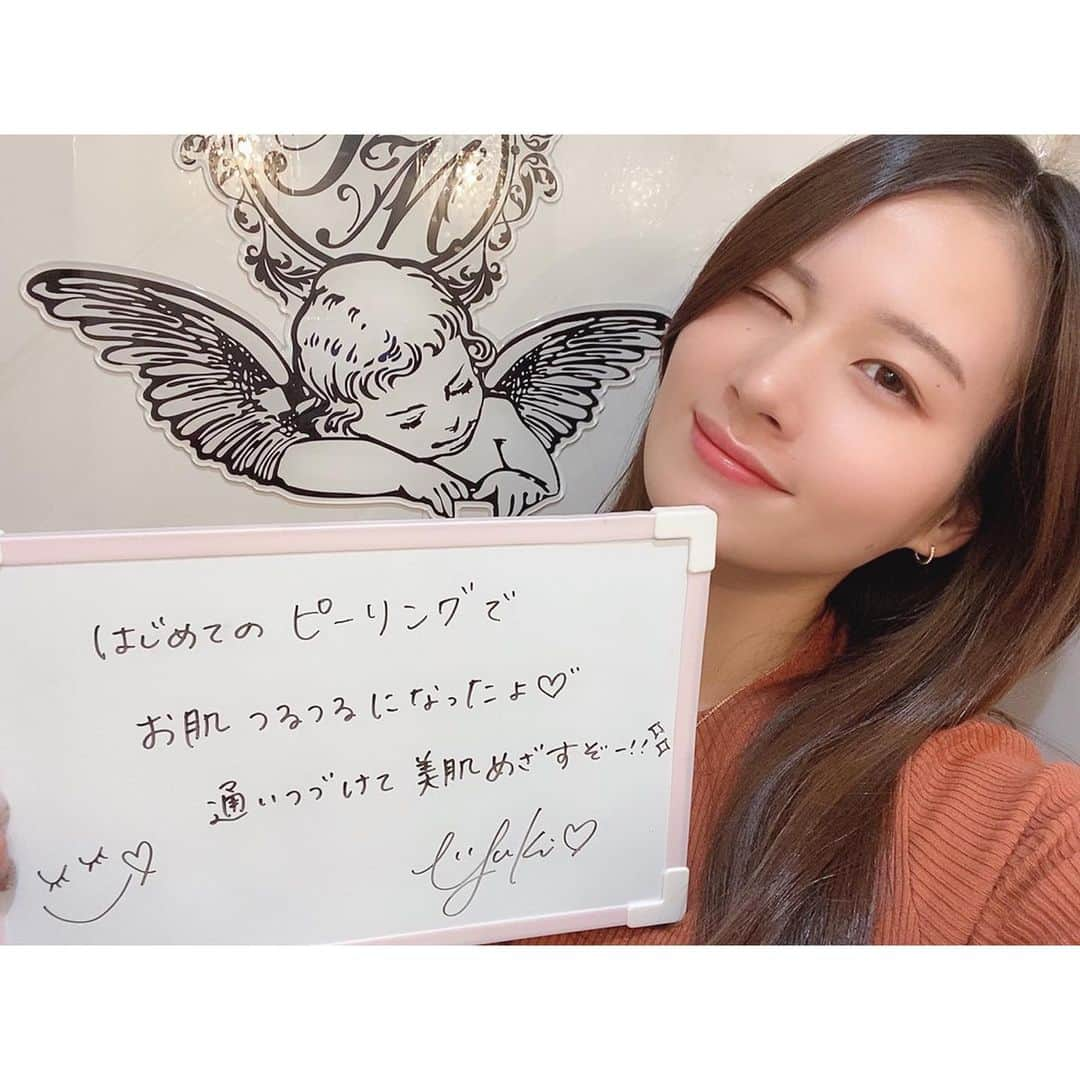 はじめての ピーリングで
お肌 つるつるになったよ♡
通いつづけて 美肌めざすぞー!!